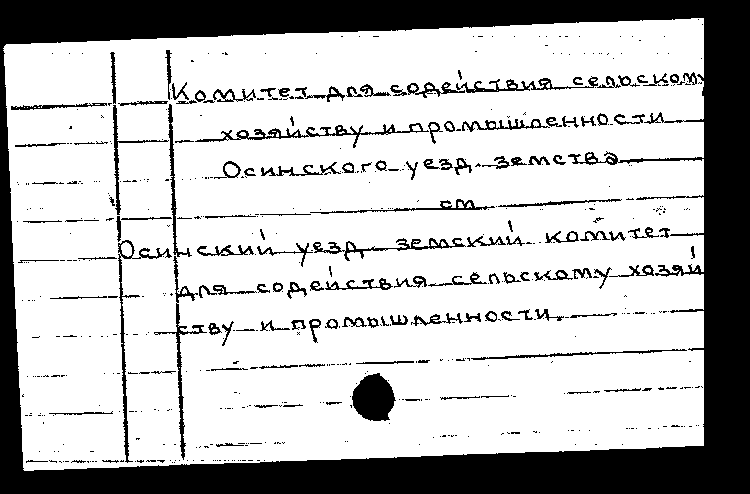 Комитет для содействия сельскому
хозяйству и промышленности
Осинского уезд. земства
см.
Осинский уезд. земский комитет
для содействия сельскому хозяй
ству и промышленности.